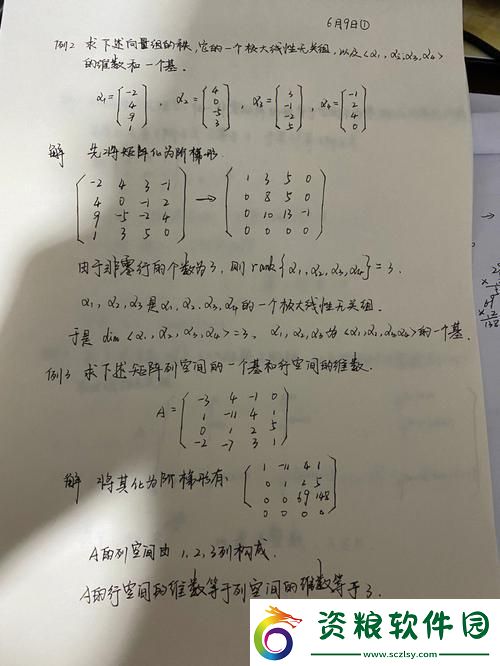 6月9日①
例2 求下述向量组的秩,它的一个极大线性无关组,以及<α₁,α₂,α₃,α₄>
的维数和一个基.
α₁=(-2 4 9 1), α₂=(4 0 -5 3), α₃=(3 -1 -2 5), α₄=(-1 2 4 0)
解 先将矩阵化为阶梯形.
-2 4 3 -1 → 1 3 5 0
4 0 -1 2 0 8 5 0
9 -5 -2 4 0 10 13 -1
1 3 5 0 0 0 0 0
由于非零行的个数为3,则rank{α₁,α₂,α₃,α₄}=3.
α₁,α₂,α₃是α₁,α₂,α₃,α₄的一个极大线性无关组.
于是 dim<α₁,α₂,α₃,α₄>=3, α₁,α₂,α₃为<α₁,α₂,α₃,α₄>的一个基.
例3 求下述矩阵列空间的一个基和行空间的维数.
A=
-3 4 -1 0
1 -11 4 1
0 1 2 5
-2 -7 3 1
解 将其化为阶梯形有:
1 -11 4 1
0 1 2 5
0 0 69 148
0 0 0 0
A的列空间由1,2,3列构成.
A的行空间的维数等于列空间的维数等于3.
资粮软件园
www.sczlsy.com